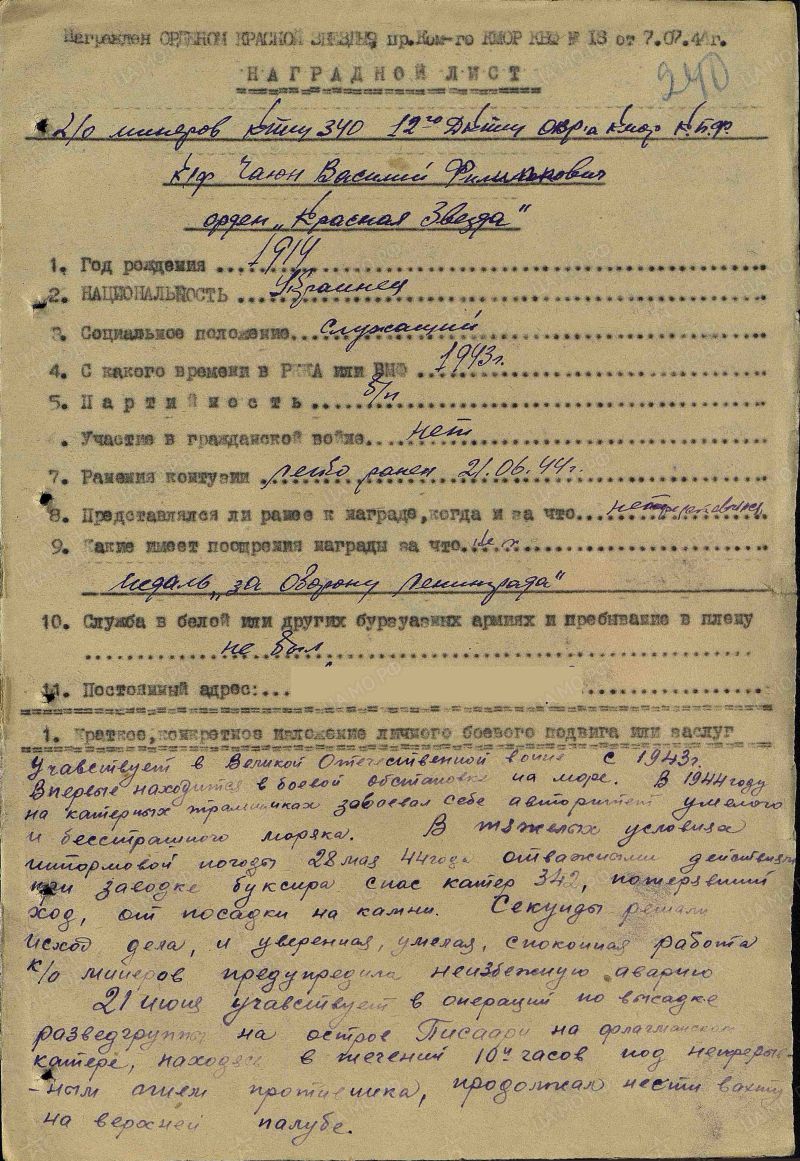 Награжден ОРДЕНОМ КРАСНОЙ ЗВЕЗДЫ, пр. Ком-го КМОР КБФ № 18 от 7.07.44г.
НАГРАДНОЙ ЛИСТ
240
к/о минеров Ктщ 340 12го Дктщ Охр-а Кмор К.Б.Ф.
к/ф Чаюн Василий
орден „Красная Звезда"
1. Год рождения 1914
2. НАЦИОНАЛЬНОСТЬ Украинец
3. Социальное положение служащий
4. С какого времени в РККА или ВМФ 1943г.
5. Партийность б/п
. Участие в гражданской войне нет
7. Ранения контузии легко ранен 21.06.44г.
8. Представлялся ли ранее к награде, когда и за что не представлялся
9. Какие имеет поощрения награды за что
медаль „за Оборону Ленинграда"
10. Служба в белой или других буржуазных армиях и пребывание в плену
не был
11. Постоянный адрес:...
1. Краткое, конкретное изложение личного боевого подвига или заслуг
Учавствует в Великой Отечественной войне с 1943г.
Впервые находится в боевой обстановке на море. В 1944 году
на катерных тральщиках завоевал себе авторитет умелого
и бесстрашного моряка. В тяжелых условиях
штормовой погоды 28 мая 44 года отважными действиями
при заводке буксира спас катер 342, потерявший
ход, от посадки на камни. Секунды решали
исход дела, и уверенная, умелая, спокойная работа
к/о минеров предупредила неизбежную аварию
21 июня учавствует в операции по высадке
разведгруппы на остров Писаари на флагманском
катере, находясь в течений 10и часов под непрерыв-
-ным огнем противника, продолжал нести вахту
на верхней палубе.